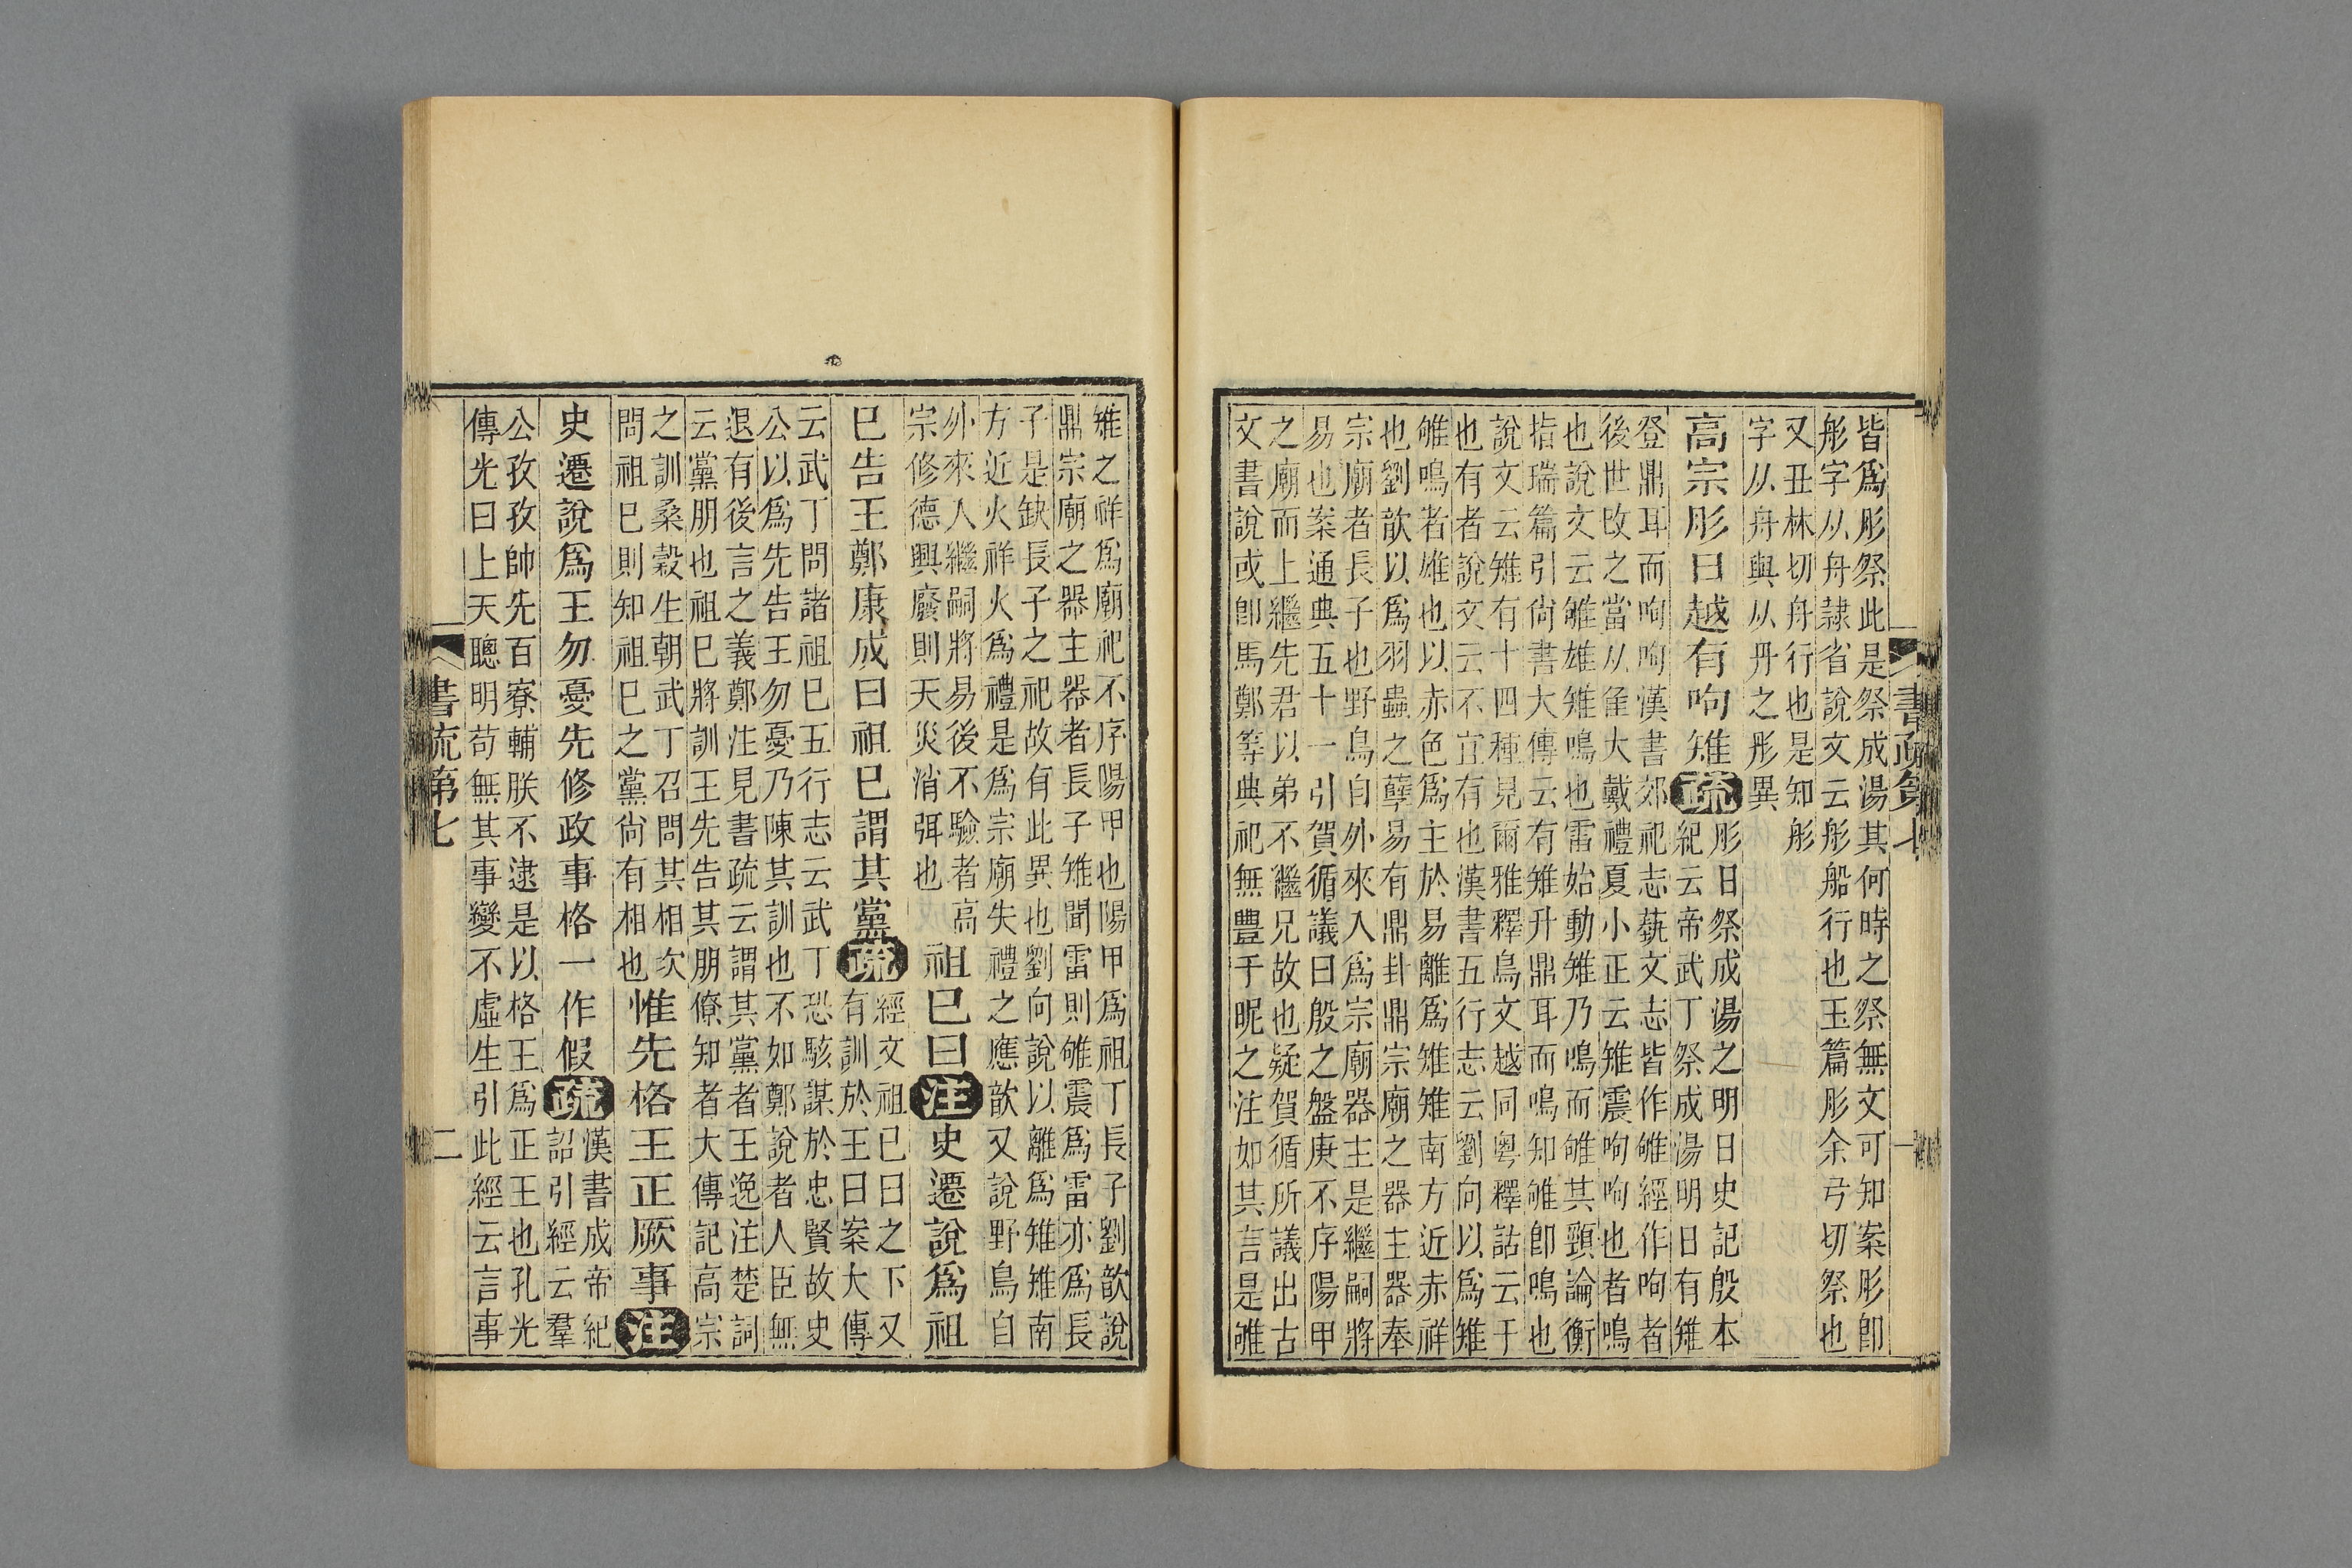 皆爲肜祭此是祭成湯其何時之祭無文可知案肜卽
彤字从舟隸省說文云彤船行也玉篇肜余弓切祭也
又丑林切舟行也是知彤
字从舟與从丹之彤異
高宗肜日越有呴雉疏
肜日祭成湯之明日史記殷本
紀云帝武丁祭成湯明日有雉
登鼎耳而呴呴漢書郊祀志蓺文志皆作雊經作呴者
後世改之當从隹大戴禮夏小正云雉震呴呴也者鳴
也說文云雊雄雉鳴也雷始動雉乃鳴而雊其頸論衡
指瑞篇引尙書大傳云有雉升鼎耳而鳴知雊卽鳴也
說文云雉有十四種見爾雅釋鳥文越同粤釋詁云于
也有者說文云不宜有也漢書五行志云劉向以爲雉
雊鳴者雄也以赤色爲主於易離爲雉雉南方近赤祥
也劉歆以爲羽蟲之孽易有鼎卦鼎宗廟之器主器奉
宗廟者長子也野鳥自外來入爲宗廟器主是繼嗣將
易也案通典五十一引賀循議曰殷之盤庚不序陽甲
之廟而上繼先君以弟不繼兄故也疑賀循所議出古
文書說或卽馬鄭等典祀無豐于昵之注如其言是雊
書疏第七
一
雉之祥爲廟祀不序陽甲也陽甲爲祖丁長子劉歆說
鼎宗廟之器主器者長子雉聞雷則雊震爲雷亦爲長
子是缺長子之祀故有此異也劉向說以離爲雉雉南
方近火祥火爲禮是爲宗廟失禮之應歆又說野鳥自
外來入繼嗣將易後不驗者高
宗修德興廢則天災消弭也
祖己曰注史遷說爲祖
己告王鄭康成曰祖己謂其黨疏
經文祖己曰之下又
有訓於王曰案大傳
云武丁問諸祖己五行志云武丁恐駭謀於忠賢故史
公以爲先告王勿憂乃陳其訓也不如鄭說者人臣無
退有後言之義鄭注見書疏云謂其黨者王逸注楚詞
云黨朋也祖己將訓王先告其朋僚知者大傳記高宗
之訓桑穀生朝武丁召問其相次
問祖己則知祖己之黨尙有相也
惟先格王正厥事注
史遷說爲王勿憂先修政事格一作假疏
漢書成帝紀
詔引經云羣
公孜孜帥先百寮輔朕不逮是以格王爲正王也孔光
傳光曰上天聰明苟無其事變不虛生引此經云言事
書疏第七
二